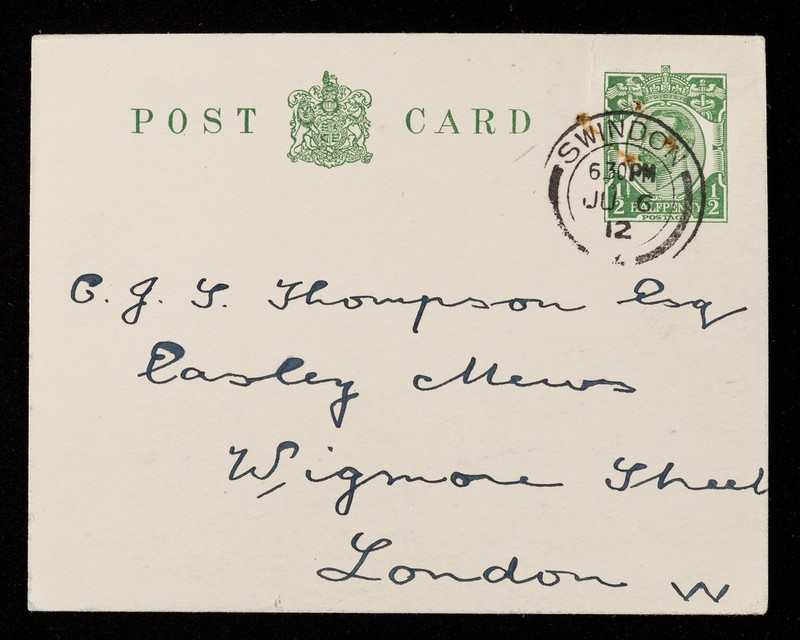 POST CARD
SWINDON
6.30PM
JU 6
12
1/2 HALFPENNY 1/2
POSTAGE
C. J. S. Thompson Esq
Easley Mews
Wigmore Street
London W